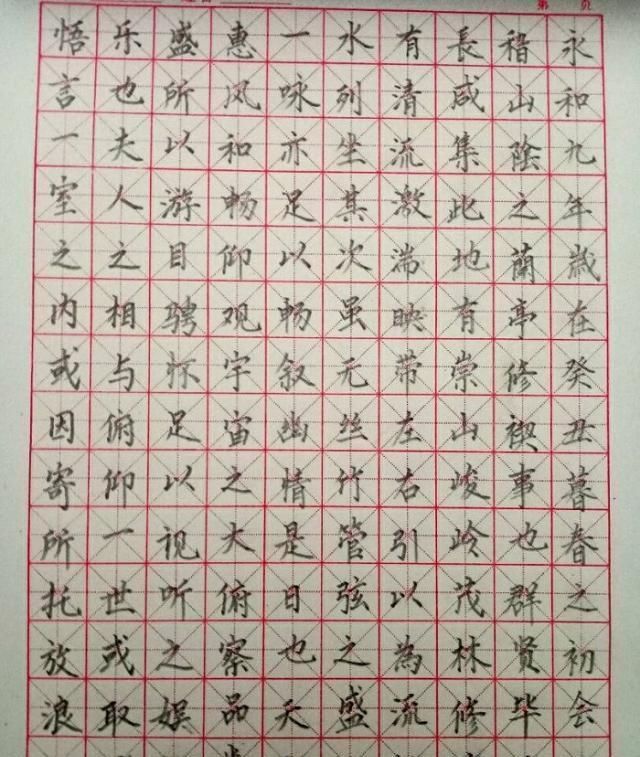 第 页
永和九年歲在癸丑暮春之初会
稽山陰之蘭亭修禊事也群贤毕
長咸集此地有崇山峻岭茂林修
有清流激湍映带左右引以為流
水列坐其次虽无丝竹管弦之盛
一咏亦足以畅叙幽情是日也天
惠风和畅仰观宇宙之大俯察品
盛所以游目骋怀足以视听之娱
乐也夫人之相与俯仰一世或取
悟言一室之内或因寄所托放浪